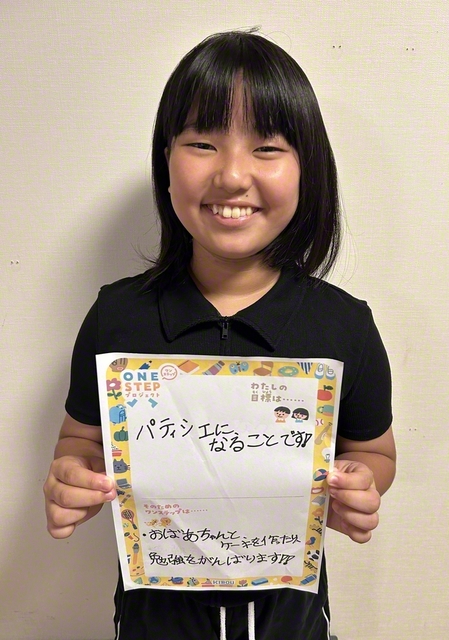 ONE
STEP
プロジェクト
わたしの
目標は……
パティシエに、
なることです!!
そのための
ワンステップは……
・おばあちゃんと
ケーキを作ったり
勉強をがんばります!!